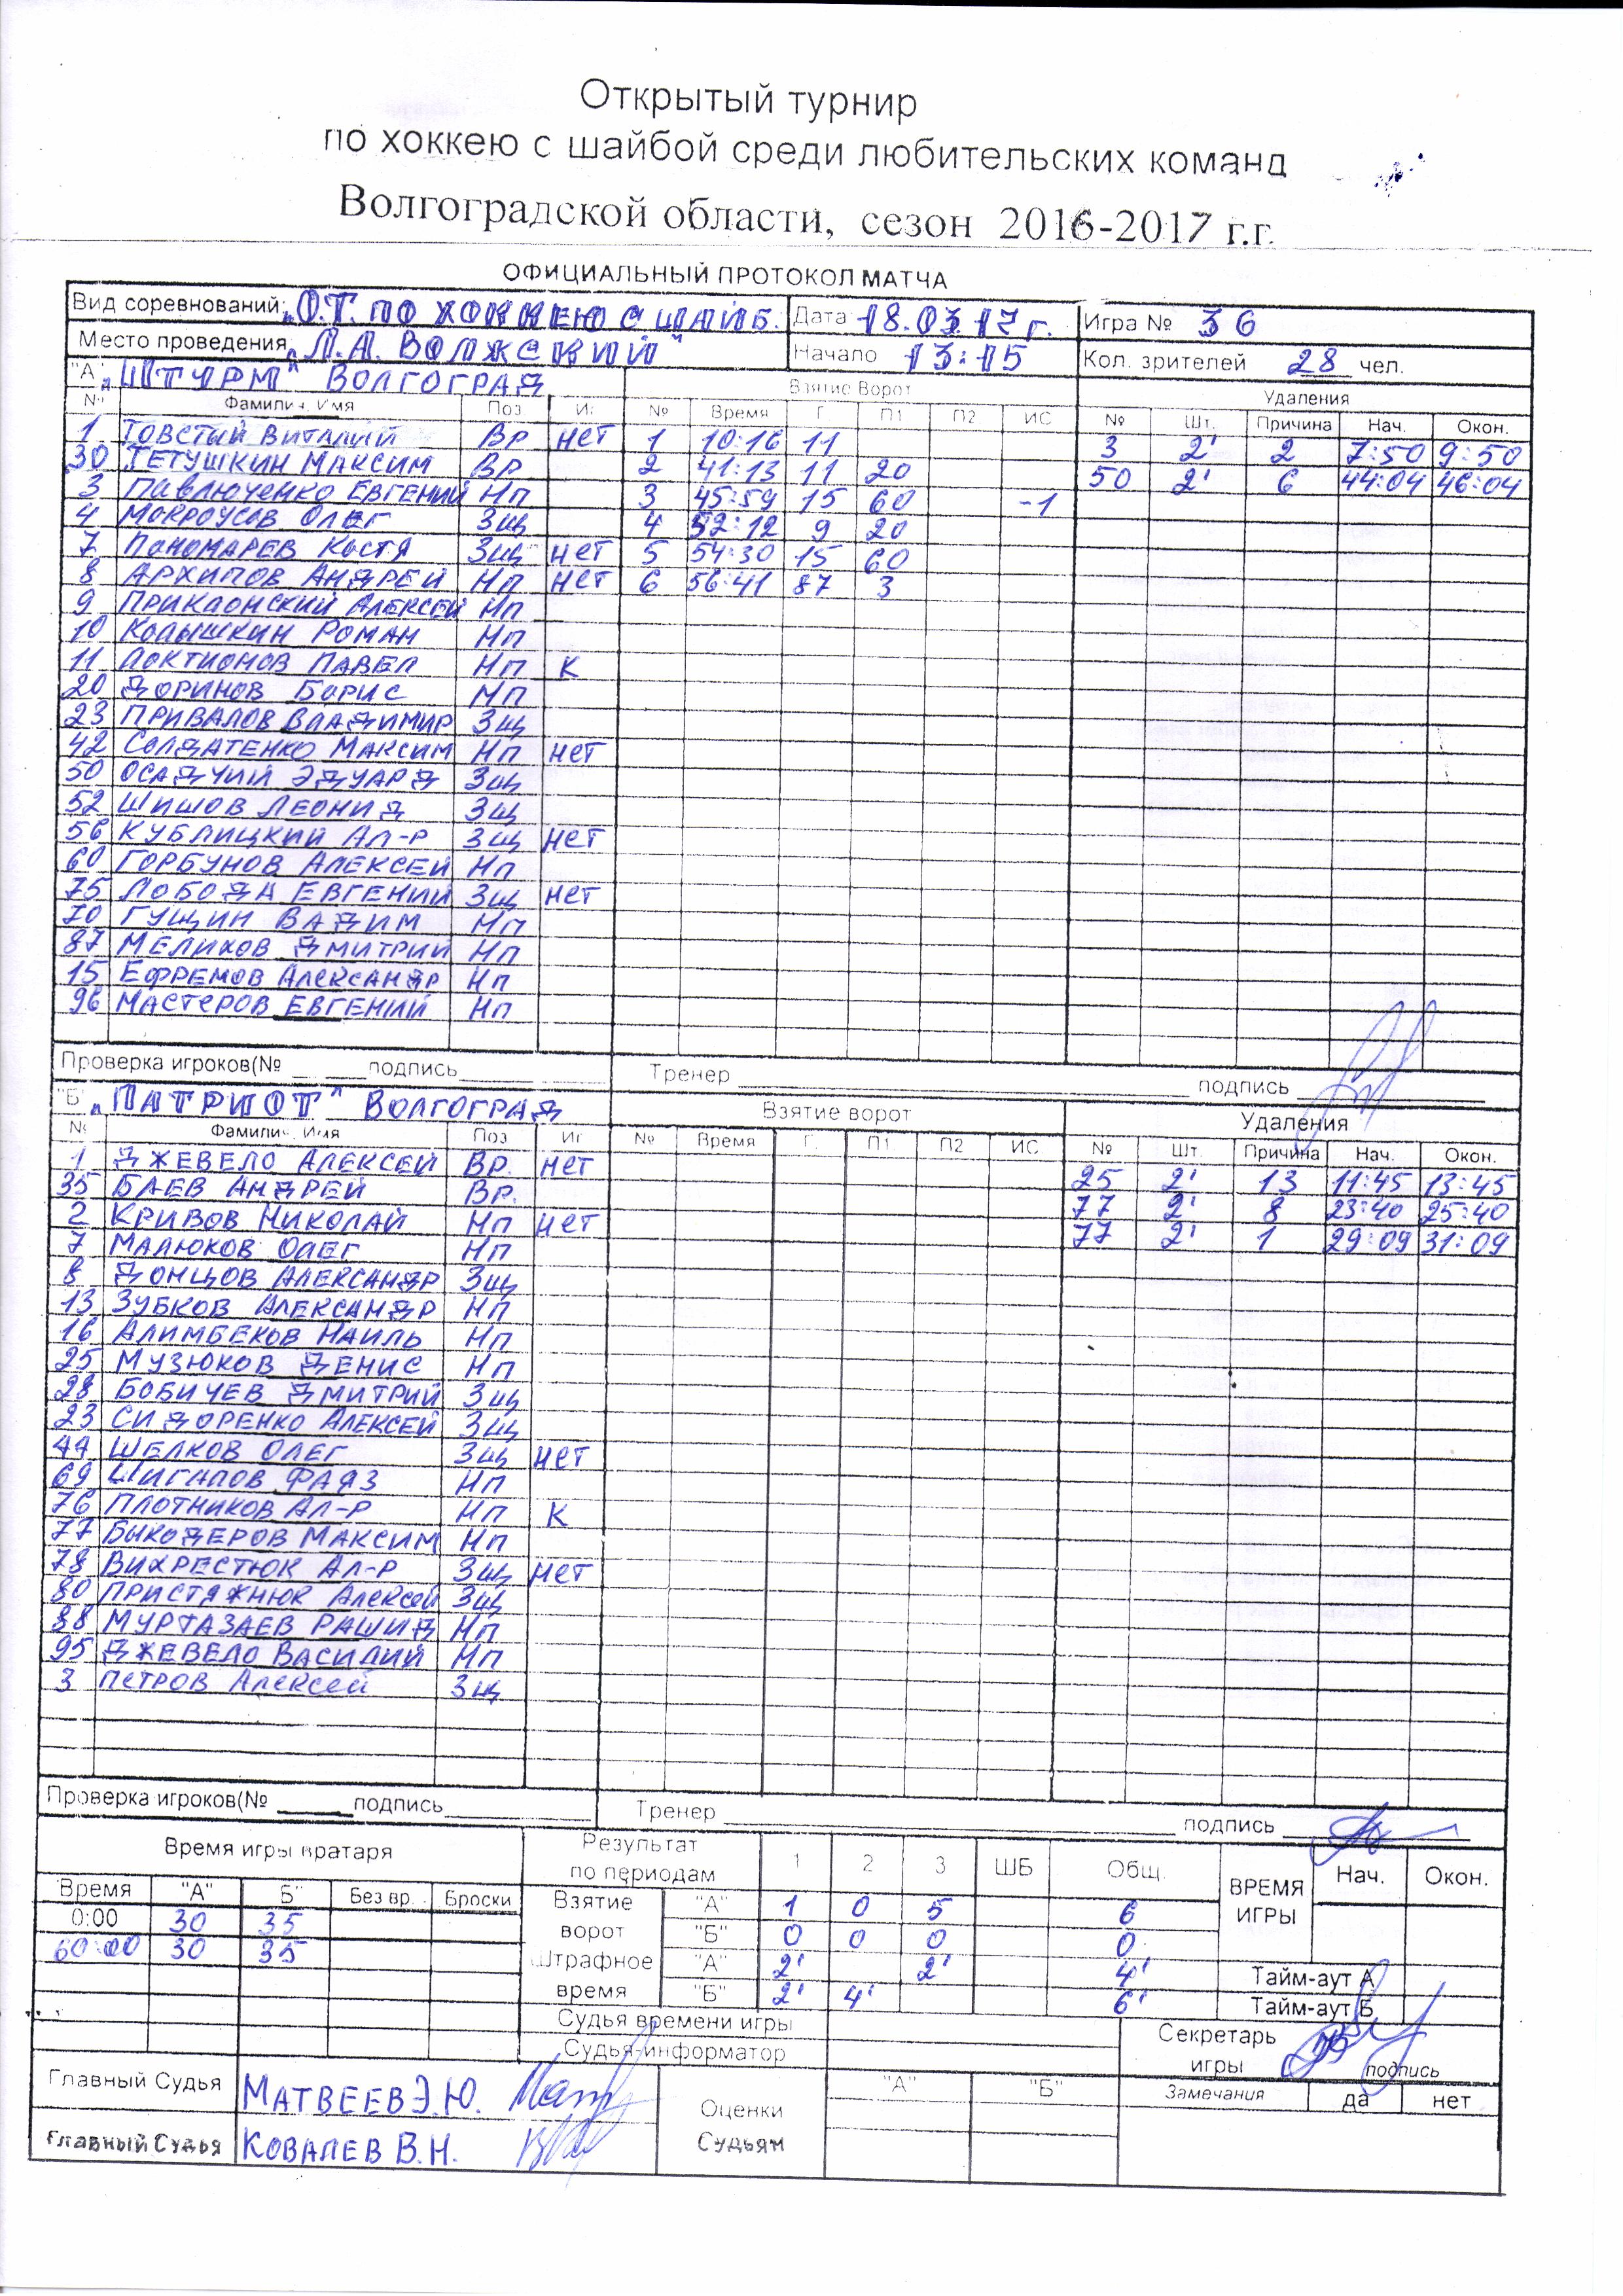 Открытый турнир
по хоккею с шайбой среди любительских команд
Волгоградской области, сезон 2016-2017 г.г.
ОФИЦИАЛЬНЫЙ ПРОТОКОЛ МАТЧА
Вид соревнований: „О.Т. ПО ХОККЕЮ С ШАЙБ. Дата 18.03.17 г. Игра № 36
Место проведения „Л.А. ВОЛЖСКИЙ" Начало 13:15 Кол. зрителей 28 чел.
"А" „ШТУРМ" ВОЛГОГРАД Взятие Ворот Удаления
№ Фамилия, Имя Поз Иг № Время Г П1 П2 ИС № Шт. Причина Нач. Окон.
1 ТОВСТЫЙ ВИТАЛИЙ Вр нет 1 10:16 11 3 2' 2 7:50 9:50
30 ТЕТУШКИН МАКСИМ Вр 2 41:13 11 20 50 2' 6 44:04 46:04
3 ПАВЛЮЧЕНКО ЕВГЕНИЙ Нп 3 45:59 15 60 -1
4 МОКРОУСОВ ОЛЕГ Зщ 4 52:12 9 20
7 ПОНОМАРЕВ КОСТЯ Зщ нет 5 54:30 15 60
8 АРХИПОВ АНДРЕЙ Нп нет 6 56:41 87 3
9 ПРИКАОНСКИЙ АЛЕКСЕЙ Нп
10 КОЛЫШКИН РОМАН Нп
11 ЛОКТИОНОВ ПАВЕЛ Нп К
20 ДОРИНОВ БОРИС Нп
23 ПРИВАЛОВ ВЛАДИМИР Зщ
42 СОЛДАТЕНКО МАКСИМ Нп нет
50 ОСАДЧИЙ ЭДУАРД Зщ
52 ШИШОВ ЛЕОНИД Зщ
56 КУБЛИЦКИЙ АЛ-Р Зщ нет
60 ГОРБУНОВ АЛЕКСЕЙ Нп
75 ЛОБОДА ЕВГЕНИЙ Зщ нет
70 ГУЩИН ВАДИМ Нп
87 МЕЛИХОВ ДМИТРИЙ Нп
15 ЕФРЕМОВ АЛЕКСАНДР Нп
96 МАСТЕРОВ ЕВГЕНИЙ Нп
Проверка игроков(№ ____ подпись ____ Тренер ____ подпись ____
"Б" „ПАТРИОТ" ВОЛГОГРАД Взятие ворот Удаления
№ Фамилия, Имя Поз Иг № Время Г П1 П2 ИС № Шт. Причина Нач. Окон.
1 ДЖЕВЕЛО АЛЕКСЕЙ Вр. нет 25 2' 13 11:45 13:45
35 БАЕВ АНДРЕЙ Вр. 77 2' 8 23:40 25:40
2 КРИВОВ НИКОЛАЙ Нп нет 77 2' 1 29:09 31:09
7 МАЛЮКОВ ОЛЕГ Нп
8 ДОНЦОВ АЛЕКСАНДР Зщ
13 ЗУБКОВ АЛЕКСАНДР Нп
16 АЛИМБЕКОВ НАИЛЬ Нп
25 МУЗЮКОВ ДЕНИС Нп
28 БОБИЧЕВ ДМИТРИЙ Зщ
23 СИДОРЕНКО АЛЕКСЕЙ Зщ
44 ШЕЛКОВ ОЛЕГ Зщ нет
69 ШИГАПОВ ФАЯЗ Нп
76 ПЛОТНИКОВ АЛ-Р Нп К
77 БИКОДЕРОВ МАКСИМ Нп
78 ВИХРЕСТЮК АЛ-Р Зщ нет
80 ПРИСТЯЖНЮК Алексей Зщ
88 МУРТАЗАЕВ РАШИД Нп
95 ДЖЕВЕЛО ВАСИЛИЙ Нп
3 ПЕТРОВ Алексей Зщ
Проверка игроков(№ ____ подпись ____ Тренер ____ подпись ____
Время игры вратаря Результат по периодам 1 2 3 ШБ Общ. ВРЕМЯ ИГРЫ Нач. Окон.
Время "А" Б" Без вр. Броски Взятие ворот "А" 1 0 5 6
0:00 30 35 "Б" 0 0 0 0
60:00 30 35 Штрафное время "А" 2' 2' 4' Тайм-аут А
"Б" 2' 4' 6' Тайм-аут Б
Судья времени игры Секретарь игры подпись
Судья-информатор
Главный Судья МАТВЕЕВ Э.Ю. Оценки Судьям "А" "Б" Замечания да нет
Главный Судья КОВАЛЕВ В.Н.